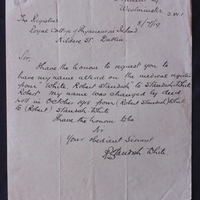 Westminster
S.W.1
8/7/19
The Registrar
Royal College of Physicians in Ireland
Kildare St. Dublin
Sir
I have the honour to request you to
have my name altered on the medical register
from White, Robert Standish to Standish-White,
Robert. My name was changed by deed
poll in October 1918 from (Robert Standish) White
to (Robert) Standish White
I have the honour to be
Sir
Your obedient Servant
R Standish White